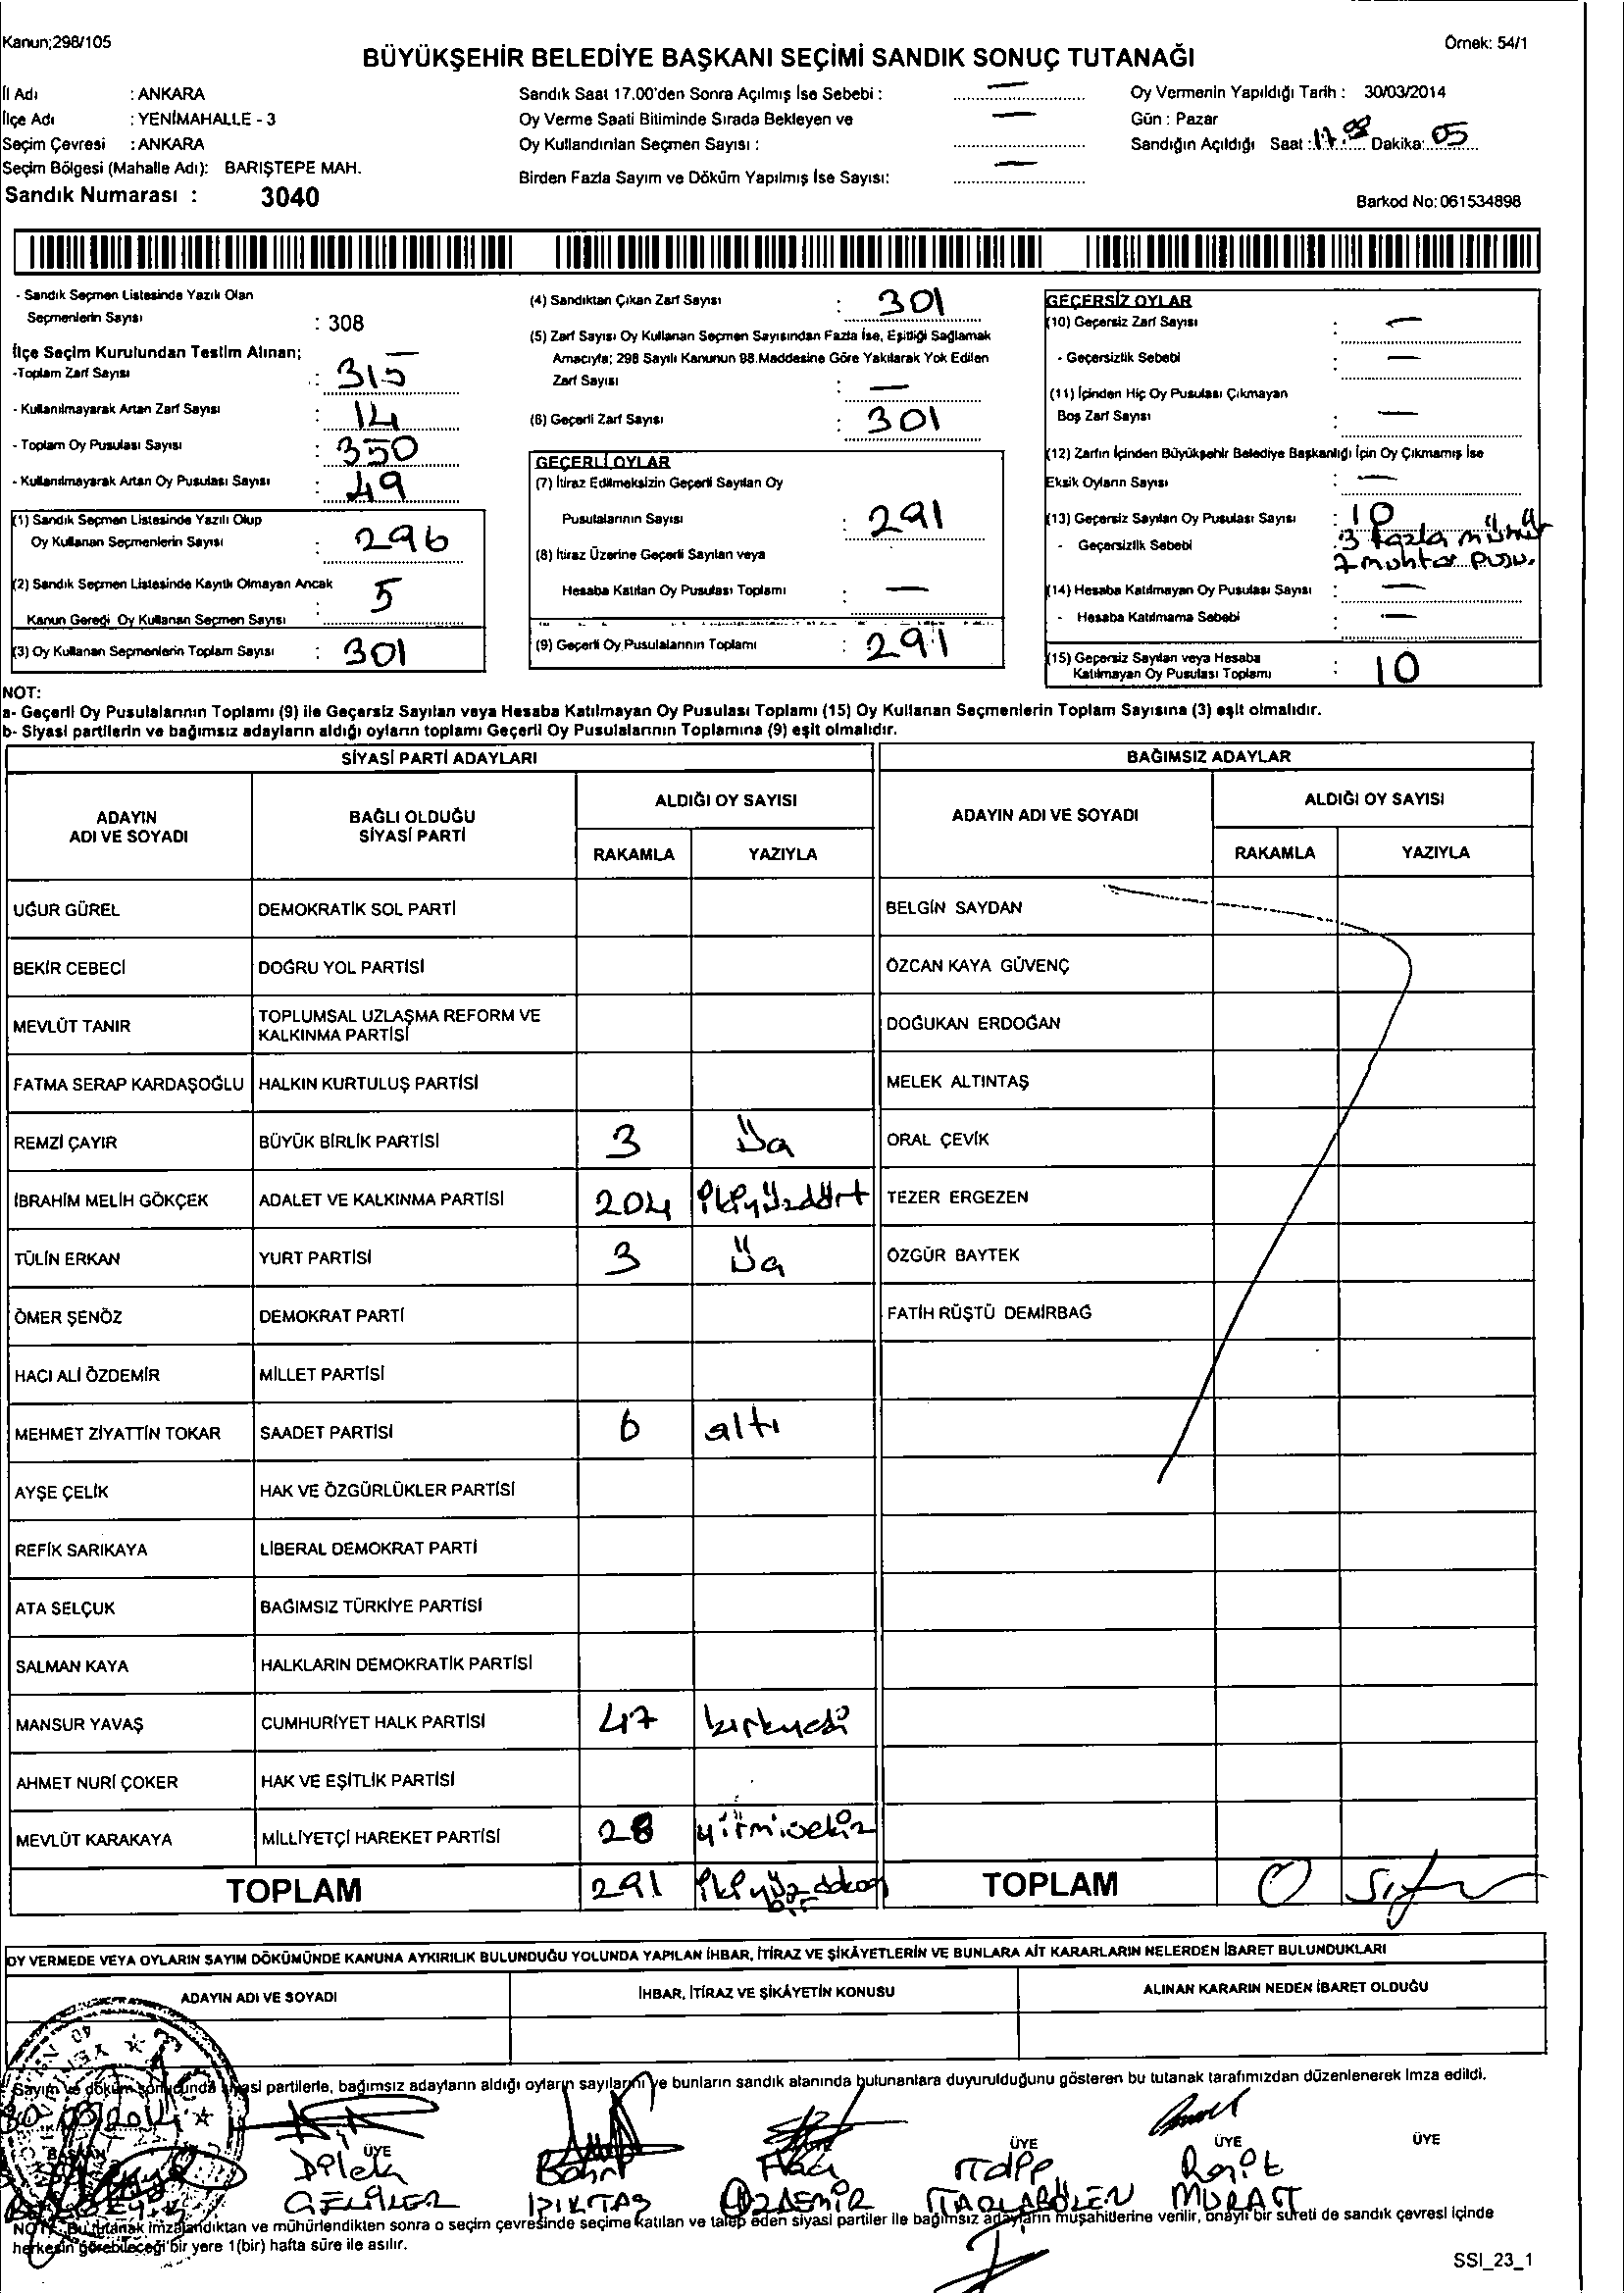 Kanun;298/105
Örnek: 54/1
BÜYÜKŞEHİR BELEDİYE BAŞKANI SEÇİMİ SANDIK SONUÇ TUTANAĞI
İl Adı : ANKARA
İlçe Adı : YENİMAHALLE - 3
Seçim Çevresi : ANKARA
Seçim Bölgesi (Mahalle Adı): BARIŞTEPE MAH.
Sandık Numarası : 3040
Sandık Saat 17.00'den Sonra Açılmış İse Sebebi : —
Oy Verme Saati Bitiminde Sırada Bekleyen ve —
Oy Kullandırılan Seçmen Sayısı :
Birden Fazla Sayım ve Döküm Yapılmış İse Sayısı: —
Oy Vermenin Yapıldığı Tarih : 30/03/2014
Gün : Pazar
Sandığın Açıldığı Saat : 17. Dakika: 05
Barkod No: 061534898
- Sandık Seçmen Listesinde Yazılı Olan
Seçmenlerin Sayısı : 308
İlçe Seçim Kurulundan Teslim Alınan;
-Toplam Zarf Sayısı : 315
- Kullanılmayarak Artan Zarf Sayısı : 14
- Toplam Oy Pusulası Sayısı : 350
- Kullanılmayarak Artan Oy Pusulası Sayısı : 49
(1) Sandık Seçmen Listesinde Yazılı Olup
Oy Kullanan Seçmenlerin Sayısı : 296
(2) Sandık Seçmen Listesinde Kayıtlı Olmayan Ancak
Kanun Gereği Oy Kullanan Seçmen Sayısı : 5
(3) Oy Kullanan Seçmenlerin Toplam Sayısı : 301
(4) Sandıktan Çıkan Zarf Sayısı : 301
(5) Zarf Sayısı Oy Kullanan Seçmen Sayısından Fazla İse, Eşitliği Sağlamak
Amacıyla; 298 Sayılı Kanunun 98.Maddesine Göre Yakılarak Yok Edilen
Zarf Sayısı : —
(6) Geçerli Zarf Sayısı : 301
GEÇERLİ OYLAR
(7) İtiraz Edilmeksizin Geçerli Sayılan Oy
Pusulalarının Sayısı : 291
(8) İtiraz Üzerine Geçerli Sayılan veya
Hesaba Katılan Oy Pusulası Toplamı : —
(9) Geçerli Oy Pusulalarının Toplamı : 291
GEÇERSİZ OYLAR
(10) Geçersiz Zarf Sayısı : —
- Geçersizlik Sebebi : —
(11) İçinden Hiç Oy Pusulası Çıkmayan
Boş Zarf Sayısı : —
(12) Zarfın İçinden Büyükşehir Belediye Başkanlığı İçin Oy Çıkmamış İse
Eksik Oyların Sayısı : —
(13) Geçersiz Sayılan Oy Pusulası Sayısı : 10
- Geçersizlik Sebebi : 3 fazla mühür
7 muhtar pusu.
(14) Hesaba Katılmayan Oy Pusulası Sayısı : —
- Hesaba Katılmama Sebebi : —
(15) Geçersiz Sayılan veya Hesaba
Katılmayan Oy Pusulası Toplamı : 10
NOT:
a- Geçerli Oy Pusulalarının Toplamı (9) ile Geçersiz Sayılan veya Hesaba Katılmayan Oy Pusulası Toplamı (15) Oy Kullanan Seçmenlerin Toplam Sayısına (3) eşit olmalıdır.
b- Siyasi partilerin ve bağımsız adayların aldığı oyların toplamı Geçerli Oy Pusulalarının Toplamına (9) eşit olmalıdır.
SİYASİ PARTİ ADAYLARI
BAĞIMSIZ ADAYLAR
ADAYIN ADI VE SOYADI
BAĞLI OLDUĞU SİYASİ PARTİ
ALDIĞI OY SAYISI
RAKAMLA YAZIYLA
ADAYIN ADI VE SOYADI
ALDIĞI OY SAYISI
RAKAMLA YAZIYLA
UĞUR GÜREL DEMOKRATİK SOL PARTİ BELGİN SAYDAN
BEKİR CEBECİ DOĞRU YOL PARTİSİ ÖZCAN KAYA GÜVENÇ
MEVLÜT TANIR TOPLUMSAL UZLAŞMA REFORM VE KALKINMA PARTİSİ DOĞUKAN ERDOĞAN
FATMA SERAP KARDAŞOĞLU HALKIN KURTULUŞ PARTİSİ MELEK ALTINTAŞ
REMZİ ÇAYIR BÜYÜK BİRLİK PARTİSİ 3 Üç ORAL ÇEVİK
İBRAHİM MELİH GÖKÇEK ADALET VE KALKINMA PARTİSİ 204 ikiyüzdört TEZER ERGEZEN
TÜLİN ERKAN YURT PARTİSİ 3 Üç ÖZGÜR BAYTEK
ÖMER ŞENÖZ DEMOKRAT PARTİ FATİH RÜŞTÜ DEMİRBAĞ
HACI ALİ ÖZDEMİR MİLLET PARTİSİ
MEHMET ZİYATTİN TOKAR SAADET PARTİSİ 6 altı
AYŞE ÇELİK HAK VE ÖZGÜRLÜKLER PARTİSİ
REFİK SARIKAYA LİBERAL DEMOKRAT PARTİ
ATA SELÇUK BAĞIMSIZ TÜRKİYE PARTİSİ
SALMAN KAYA HALKLARIN DEMOKRATİK PARTİSİ
MANSUR YAVAŞ CUMHURİYET HALK PARTİSİ 47 kırkyedi
AHMET NURİ ÇOKER HAK VE EŞİTLİK PARTİSİ
MEVLÜT KARAKAYA MİLLİYETÇİ HAREKET PARTİSİ 28 yirmisekiz
TOPLAM 291 ikiyüzdoksan bir TOPLAM 0 Sıfır
OY VERMEDE VEYA OYLARIN SAYIM DÖKÜMÜNDE KANUNA AYKIRILIK BULUNDUĞU YOLUNDA YAPILAN İHBAR, İTİRAZ VE ŞİKÂYETLERİN VE BUNLARA AİT KARARLARIN NELERDEN İBARET BULUNDUKLARI
ADAYIN ADI VE SOYADI İHBAR, İTİRAZ VE ŞİKÂYETİN KONUSU ALINAN KARARIN NEDEN İBARET OLDUĞU
Sayım ve döküm sonucunda siyasi partilerle, bağımsız adayların aldığı oyların sayılarını ve bunların sandık alanında bulunanlara duyurulduğunu gösteren bu tutanak tarafımızdan düzenlenerek imza edildi.
30-03/2014
BAŞKAN ÜYE ÜYE ÜYE ÜYE
Dilek Hacı Raşit
GELİLER ÖZDEMİR MURAT
NOT: Bu tutanak imzalandıktan ve mühürlendikten sonra o seçim çevresinde seçime katılan ve talep eden siyasi partiler ile bağımsız adayların müşahitlerine verilir, onaylı bir sureti de sandık çevresi içinde
herkesin görebileceği bir yere 1(bir) hafta süre ile asılır.
SSI_23_1